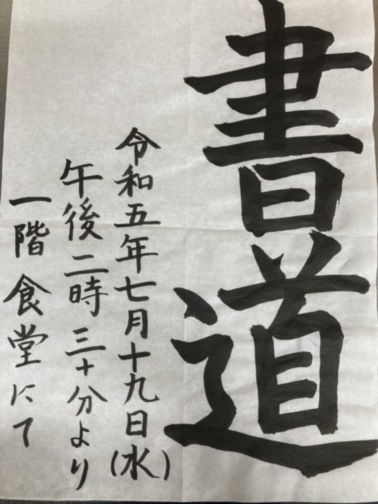 書道
令和五年七月十九日(水)
午後二時三十分より
一階食堂にて